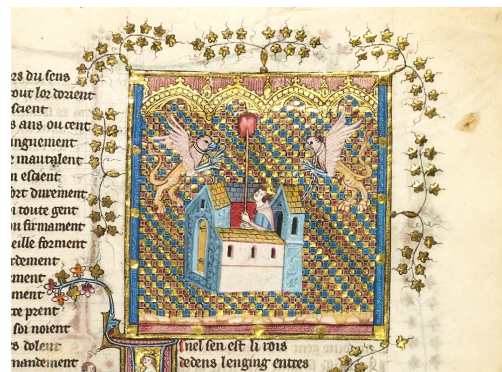 rs du sens
tout lor dorient
scient
s ans ou cent
inguement
mautalent
n escient
fort durement
i toute gent
ou firmament
eille forment
rdement
ment
ment
te prent
soi noient
s dolent
mandement
nel sen est li rois
dedens lenging entres